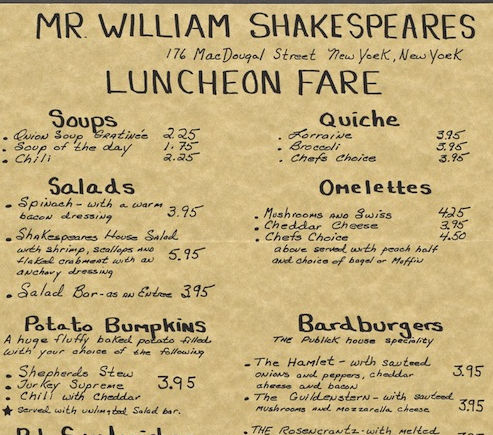 MR. WILLIAM SHAKESPEARES
176 MacDougal Street New York, New York
LUNCHEON FARE
Soups
• Onion Soup Gratinée 2.25
• Soup of the day 1.75
• Chili 2.25
Salads
• Spinach - with a warm
bacon dressing 3.95
• Shakespeares House Salad
with shrimp, scallops and
flaked crabmeat with an 5.95
anchovy dressing
• Salad Bar - as an Entree 3.95
Potato Bumpkins
A huge fluffy baked potato filled
with your choice of the following
• Shepherds Stew
• Turkey Supreme 3.95
• Chili with Cheddar
★ Served with unlimited Salad bar.
Quiche
• Lorraine 3.95
• Broccoli 3.95
• Chefs Choice 3.95
Omelettes
• Mushrooms and Swiss 4.25
• Cheddar Cheese 3.95
• Chefs Choice 4.50
above served with peach half
and choice of bagel or Muffin
Bardburgers
The Publick house speciality
• The Hamlet - with sauteed
onions and peppers, cheddar 3.95
cheese and bacon
• The Guildenstern - with sauteed
Mushrooms and mozzarella cheese 3.95
• The Rosencrantz - with melted